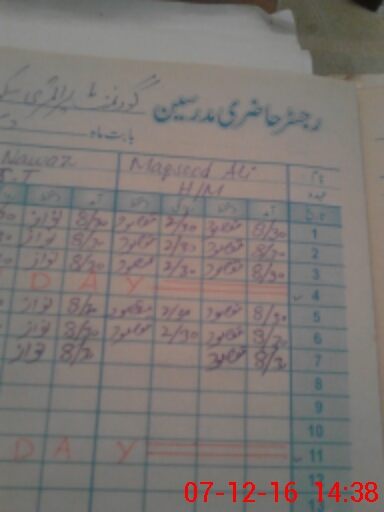 گورنمنٹ پرائمری سکو
رجسٹر حاضری مدرسین
بابت ماہ
Nawaz Maqsood Ali نام
S.T H/M عہدہ
نواز 8/30 مقصود 2/30 مقصود 8/30 1
نواز 8/30 مقصود 2/30 مقصود 8/30 2
نواز 8/30 مقصود 2/30 مقصود 8/30 3
D A Y 4
نواز 8/30 مقصود 2/30 مقصود 8/30 5
نواز 8/30 مقصود 2/30 مقصود 8/30 6
نواز 8/30 مقصود 8/30 7
8
9
10
D A Y 11
12
07-12-16 14:38